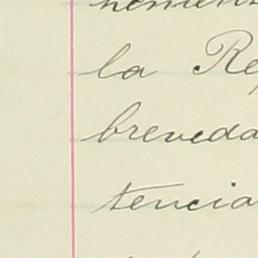 la Re
breveda
tencia